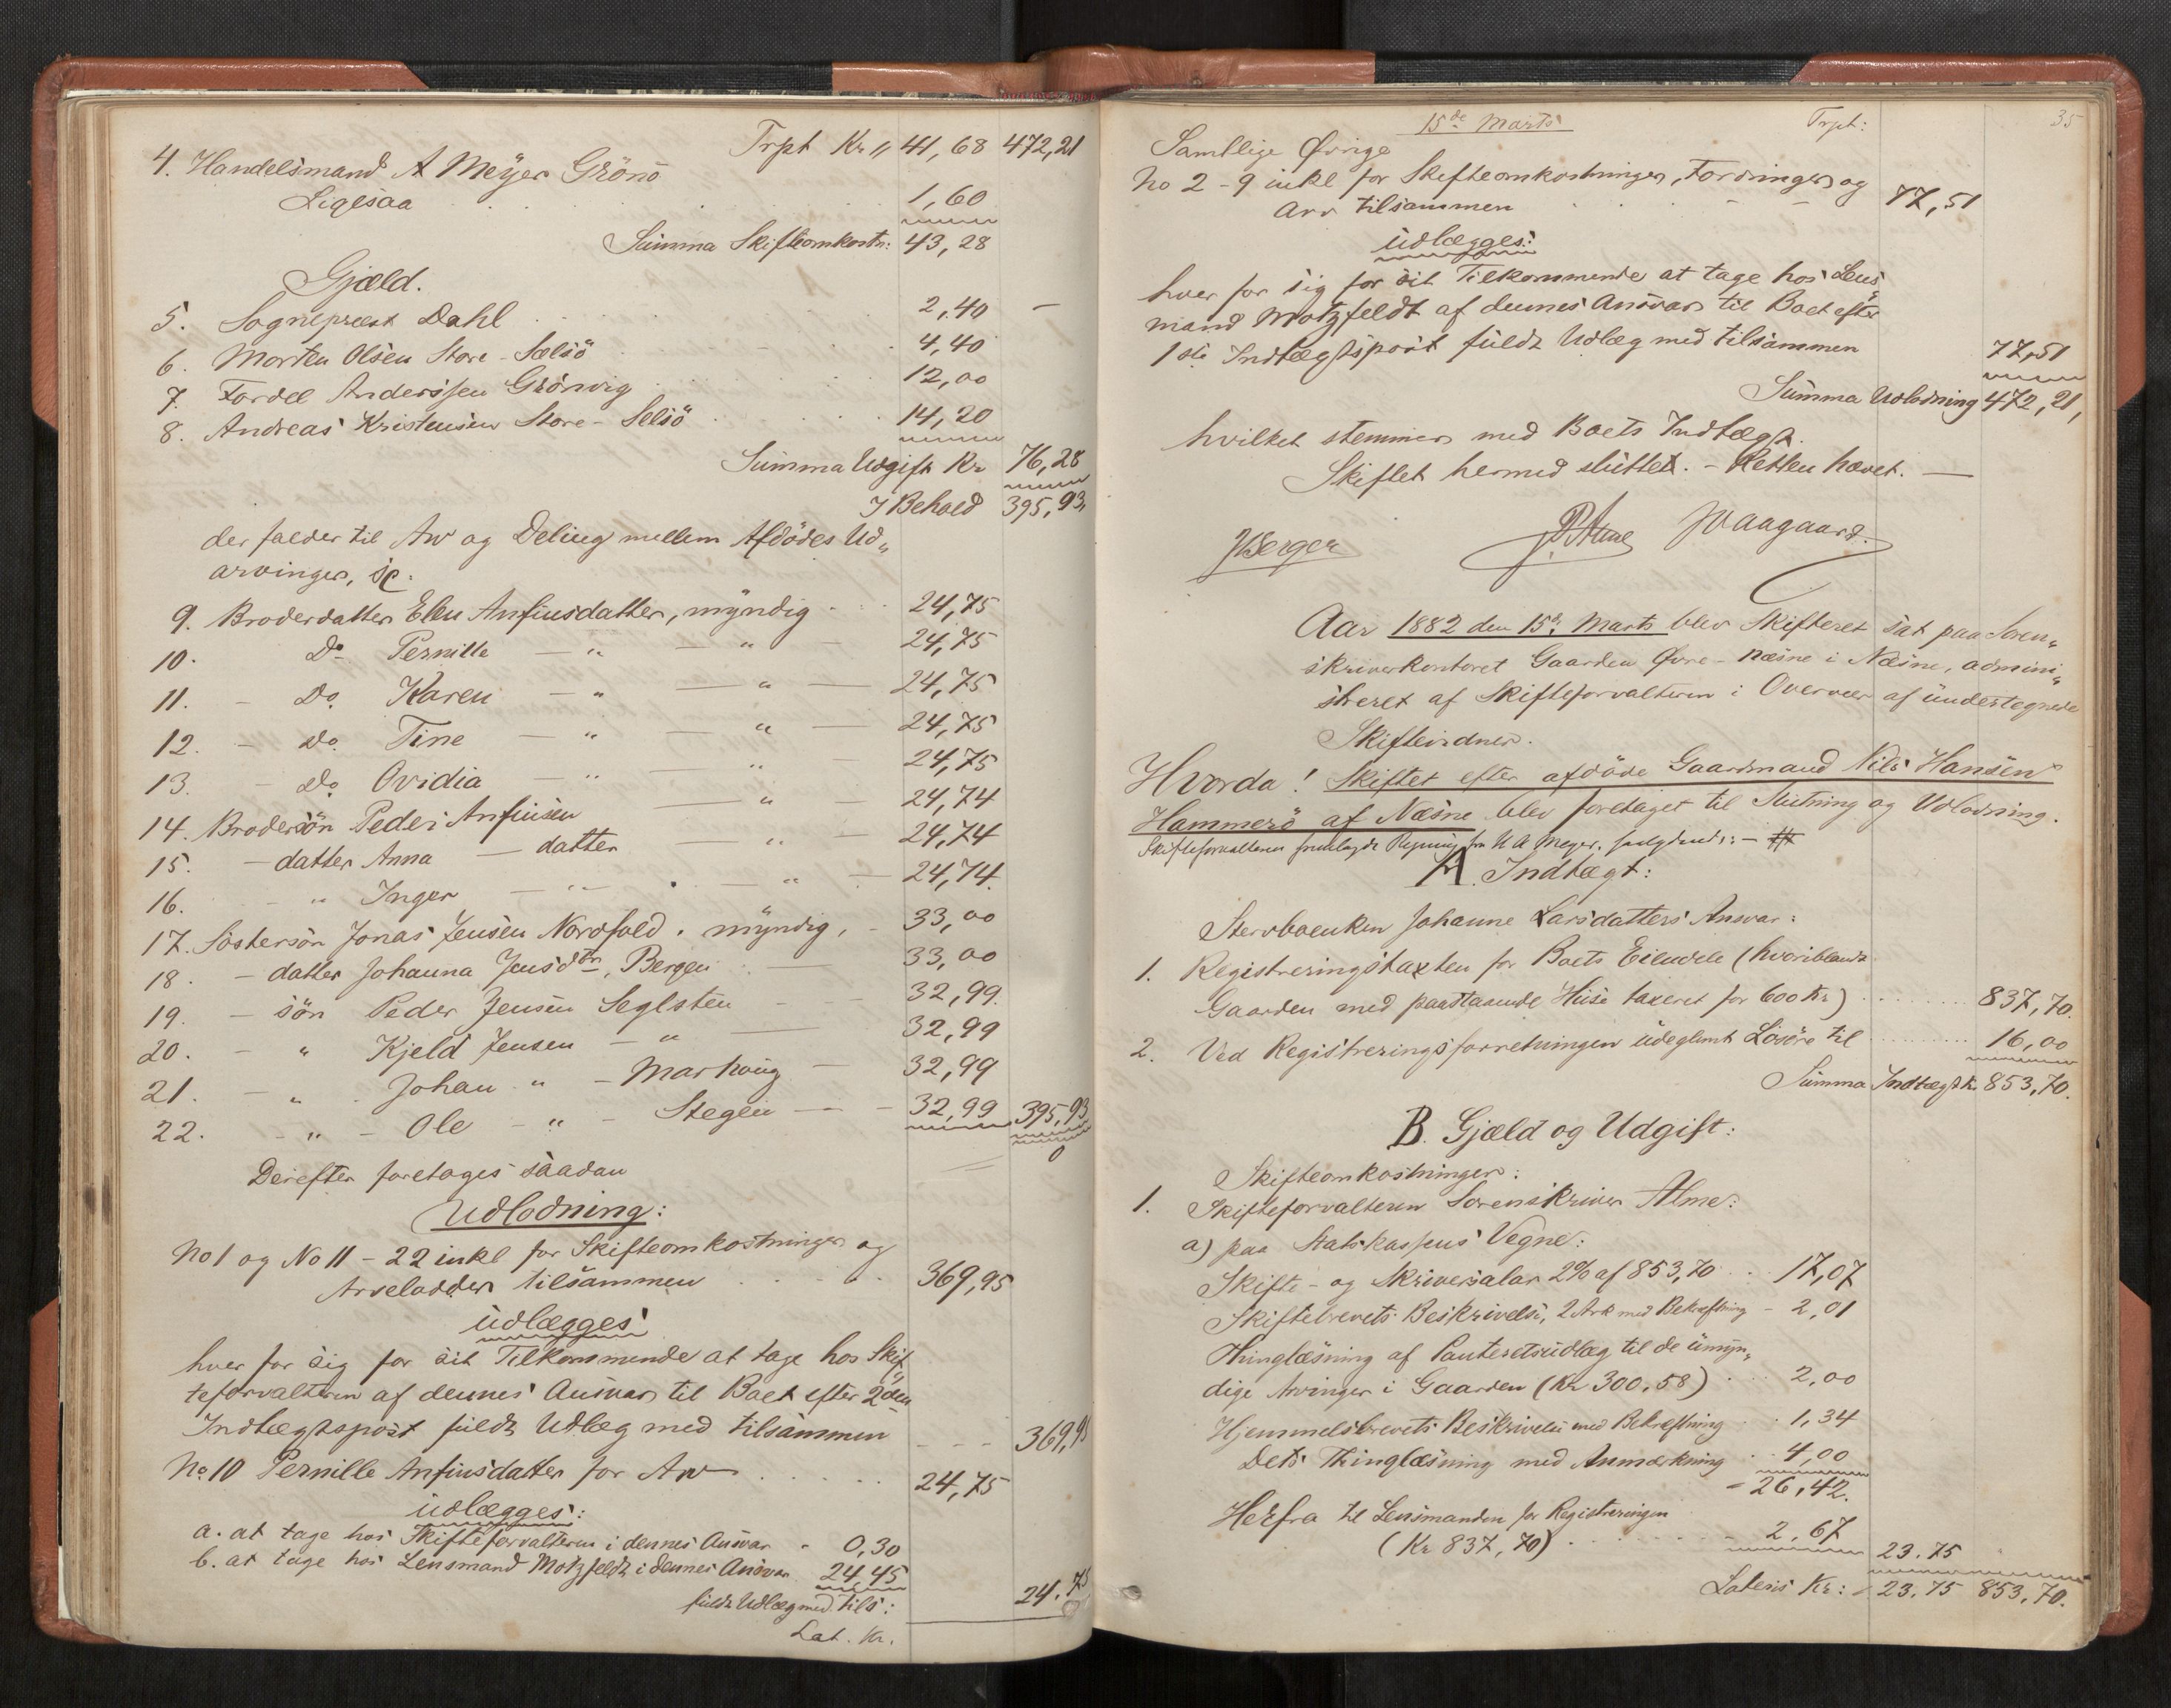 Trpt Kr „ 41,68 472,21
4. Handelsmand A Meyer Grönö
Ligesaa 1,60
Summa Skifteomkostn: 43,28
Gjæld.
5. Sogneprest Dahl 2,40 –
6. Morten Olsen Store-Selsö 4,40
7. Tordel Anderssen Grönvig 12,00
8. Andreas Kristensen Store-Selsö 14,20
Summa Udgift Kr 76,28
I Behold 395,93
der falder til Arv og Deling mellem Afdödes Ud„
arvinger, sc:
9. Broderdatter Elen Anfinsdatter, myndig 24,75
10. Do Pernille – „ – „ – 24,75
11. – Do Karen – „ – „ – 24,75
12. – Do Tine – „ – „ – 24,75
13. – Do Ovidia – „ – „ – 24,75
14. Brodersön Peder Anfinsen – „ – 24,74
15. – datter Anna – datter – „ – 24,74
16. – „ Inger – „ – „ – 24,74.
17. Söstersön Jonas Jensen Nordfold, myndig, – 33,00
18. – datter Johanna Jensdtr, Bergen – 33,00
19. – sön Peder Jensen Seglsten – 32,99.
20. – „ Kjeld Jensen – „ – 32,99
21. – „ Johan „ – Marhaug – 32,99
22. – „ – Ole – „ – Stegen – 32,99 395,93
0
Derefter foretages saadan
Udlodning:
No 1 og No 11 – 22 inkl for Skifteomkostninger og
Arvelodder tilsammen 369,95
udlægges
hver for sig for sit Tilkommende at tage hos Skif„
teforvalteren af dennes Ansvar til Boet efter 2den
Indtægtspost fuldt Udlæg med tilsammen – – – 369,95
No 10 Pernille Anfinsdatter for Arv 24,75
udlægges:
a. at tage hos Skifteforvalteren i dennes Ansvar – 0,30
b. at tage hos Lensmand Motzfeldt i dennes Ansvar 24,45
fuldt Udlæg med tils: 24.75
Lat. Kr.
15de Marts Trpt: 35
Samtlige Övrige
No 2 – 9 inkl for Skifteomkostninger, Fordringer og
Arv tilsammen 77,51
udlægges:
hver for sig for sit Tilkommende at tage hos Lens„
mand Motzfeldt af dennes Ansvar til Boet efter
1ste Indtægtspost fuldt Udlæg med tilsammen 77,51
Summa Udlodning 472,21,
hvilket stemmer med Boets Indtægt.
Skiftet hermed sluttet. – Retten hævet. –
JBerger PAlme JVaagaard.
Aar 1882 den 15de Marts blev Skifteret sat paa Soren„
skriverkontoret Gaarden Övre-Næsne i Næsne, admini„
streret af Skifteforvalteren i Overvær af undertegnede
Skiftevidner.
Hvorda! Skiftet efter afdöde Gaardmand Nils Hansen
Hammerö af Næsne blev foretaget til Slutning og Udlodning.
Skifteforvalteren fremlagde Regning fra H A Meyer, saalydende: –
A. Indtægt:
Stervboenken Johanne Larsdatters Ansvar:
1. Registreringstaxten for Boets Eiendele (hvoriblandt
Gaarden med paastaaende Huse taxeret for 600 Kr) 837,70.
2. Ved Registreringsforretningen udeglemt Lösöre til 16,00
Summa Indtægt Kr 853,70.
B. Gjæld og Udgift:
Skifteomkostninger:
1. Skifteforvalteren Sorenskriver Alme:
a) paa Statskassens Vegne:
Skifte- og Skriversalær 2% af 853,70 17,07
Skiftebrevets Beskrivelse, 2 Ark med Bekræftning – 2,01
Thinglæsning af Panteretsudlæg til de umyn„
dige Arvinger i Gaarden (Kr 300,58) 2,00
Hjemmelsbrevets Beskrivelse med Bekræftning 1,34
Dets Thinglæsning med Anmærkning 4,00
– 26,42.
Herfra til Lensmanden for Registreringen
(Kr 837,70) 2,67 23.75
Lateris Kr: 23.75 853,70.